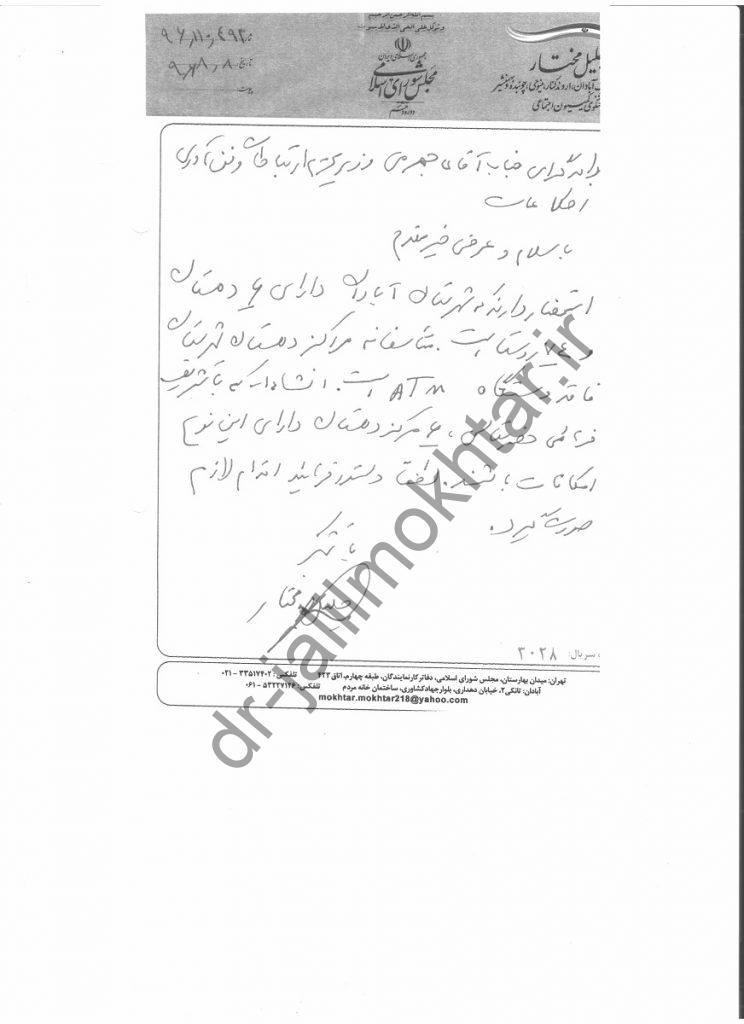 بسم الله الرحمن الرحیم
و توکل علی الحی الذی لا یموت
جمهوری اسلامی ایران
مجلس شورای اسلامی
۹۶/۱۱۰/۴۹۲
تاریخ: ۹۶/۸/۸
جلیل مختار
آبادان، اروندکنار، مینوئی، چوئبده و بهمنشیر
کمیسیون اجتماعی
جناب آقای جهرمی وزیر محترم ارتباطات و فن آوری
اطلاعات
با سلام و عرض خیر مقدم
استحضار دارند که شهرستان آبادان دارای ۶ دهستان
و ۷۴ روستا است. متاسفانه مراکز دهستان شهرستان
فاقد دستگاه ATM است. انشاءاله که با تشریف
فرمائی حضرتعالی، ۶ مرکز دهستان دارای این نوع
امکانات باشند. لطفاً دستور فرمائید اقدام لازم
صورت گیرد.
با تشکر
جلیل مختار
سریال: ۲۰۲۸
تهران: میدان بهارستان، مجلس شورای اسلامی، دفاتر کار نمایندگان، طبقه چهارم، اتاق ۴۲۳ تلفکس: ۳۳۵۱۷۴۰۲ - ۰۲۱
آبادان: تانکی۲، خیابان دهداری، بلوار جهاد کشاورزی، ساختمان خانه مردم تلفکس: ۵۳۲۲۷۱۴۶ - ۰۶۱
mokhtar.mokhtar218@yahoo.com
dr-jalilmokhtar.ir